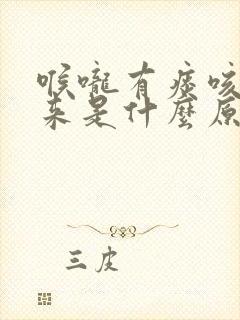 喉嚨有痰咳
來是什麼原
三皮